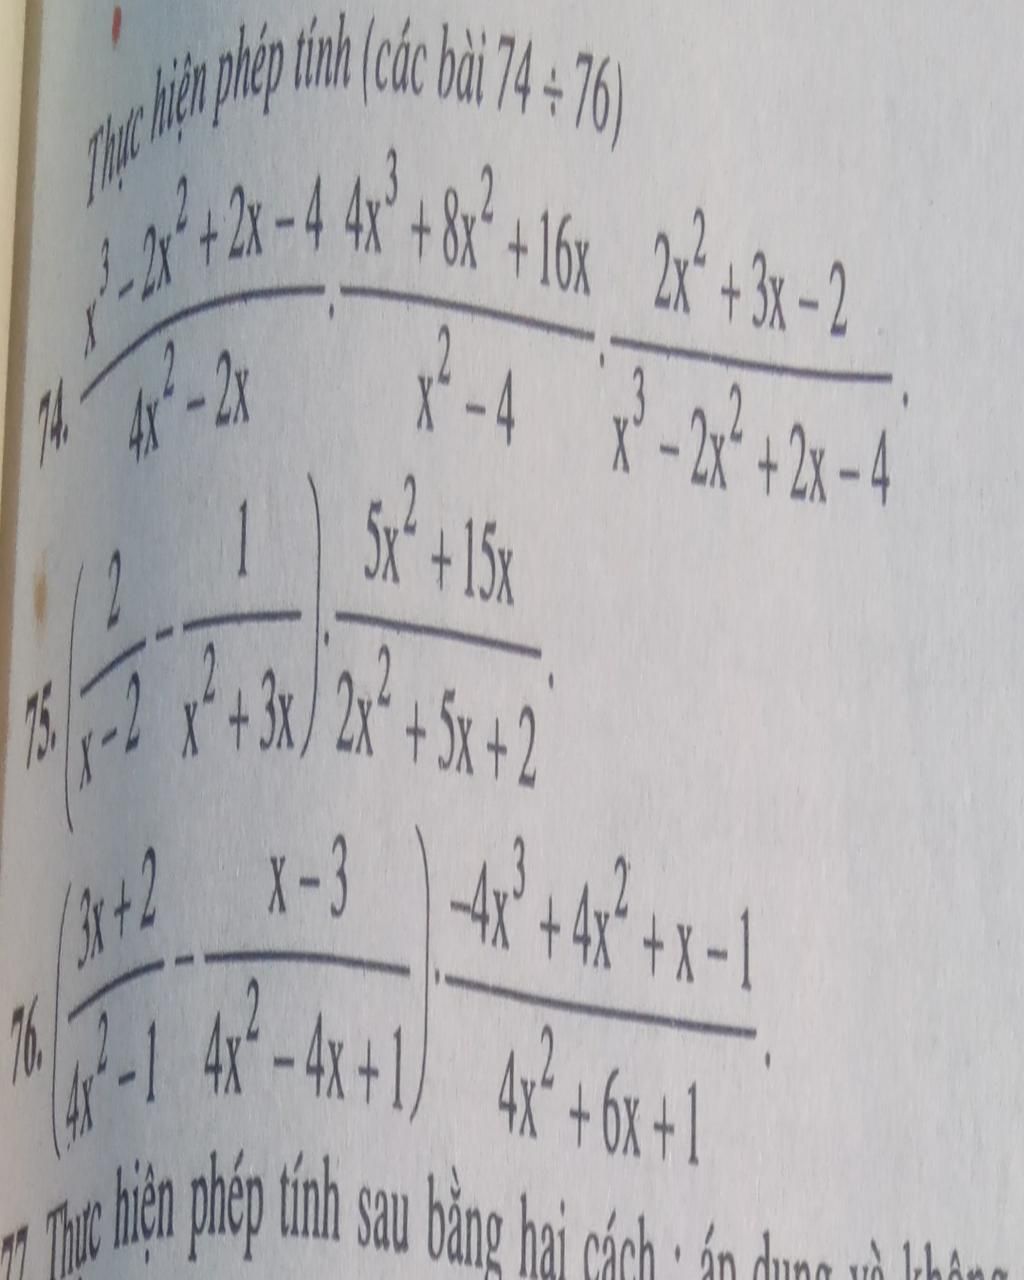 Thực hiện phép tính (các bài 74 ÷ 76)
74. \frac{x^3 - 2x^2 + 2x - 4}{4x^2 - 2x} . \frac{4x^3 + 8x^2 + 16x}{x^2 - 4} . \frac{2x^2 + 3x - 2}{x^3 - 2x^2 + 2x - 4} .
75. \left( \frac{2}{x - 2} - \frac{1}{x^2 + 3x} \right) . \frac{5x^2 + 15x}{2x^2 + 5x + 2} .
76. \left( \frac{3x + 2}{4x^2 - 1} - \frac{x - 3}{4x^2 - 4x + 1} \right) . \frac{-4x^3 + 4x^2 + x - 1}{4x^2 + 6x + 1} .
77. Thực hiện phép tính sau bằng hai cách : áp dụng và không